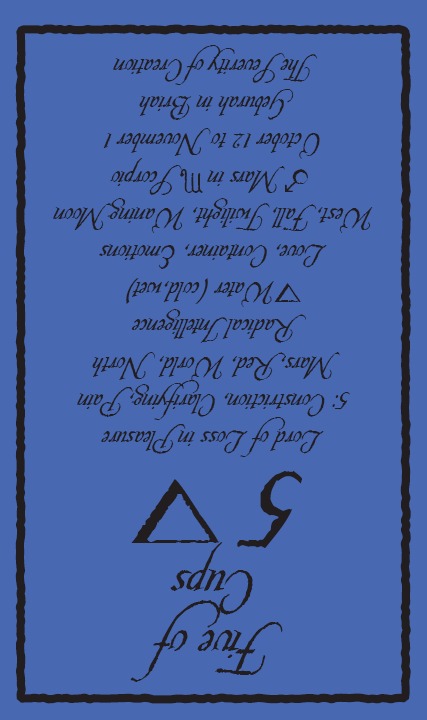 Five of
Cups
5 ▽
Lord of Loss in Pleasure
5: Constriction, Clarifying, Pain
Mars, Red, World, North
Radical Intelligence
▽ Water (cold, wet)
Love, Container, Emotions
West, Fall, Twilight, Waning Moon
♂ Mars in ♏ Scorpio
October 12 to November 1
Geburah in Briah
The Severity of Creation